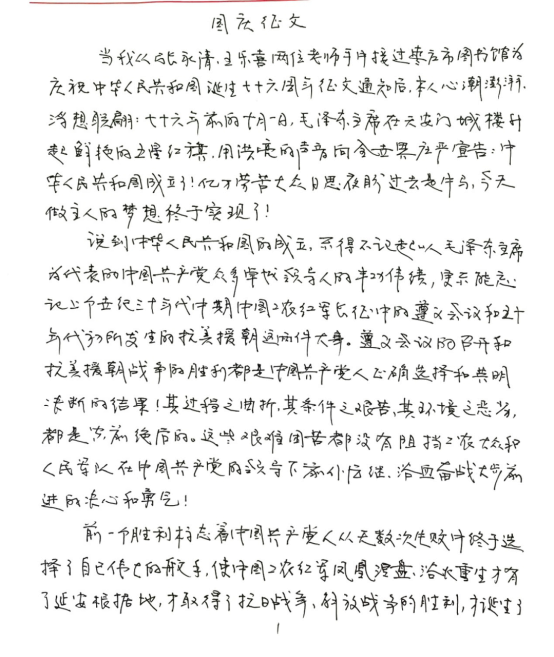 国庆征文
当我从 永清、王乐喜两位老师手中接过枣庄市图书馆为
庆祝中华人民共和国诞生七十六周年征文通知后,本人心潮澎湃,
浮想联翩:七十六年前的十月一日,毛泽东主席在天安门城楼升
起鲜艳的五星红旗,用洪亮的声音向全世界庄严宣告:中
华人民共和国成立了!亿万劳苦大众日思夜盼过去是牛马,今天
做主人的梦想终于实现了!
说到中华人民共和国的成立,不得不记起以人毛泽东主席
为代表的中国共产党众多 领导人的丰功伟绩,更不能忘
记上个世纪三十年代中期中国工农红军长征中的遵义会议和五十
年代初所发生的抗美援朝这两件大事。遵义会议的召开和
抗美援朝战争的胜利都是中国共产党人正确选择和英明
决断的结果!其过程之曲折,其条件之艰苦,其环境之恶劣,
都是空前绝后的。这些艰难困苦都没有阻挡工农大众和
人民军队在中国共产党的领导下前仆后继、浴血奋战大步前
进的决心和勇气!
前一个胜利标志着中国共产党人从无数次失败中终于选
择了自己伟大的舵手,使中国工农红军凤凰涅盘、浴火重生才有
了延安根据地,才取得了抗日战争、解放战争的胜利,才诞生了
1